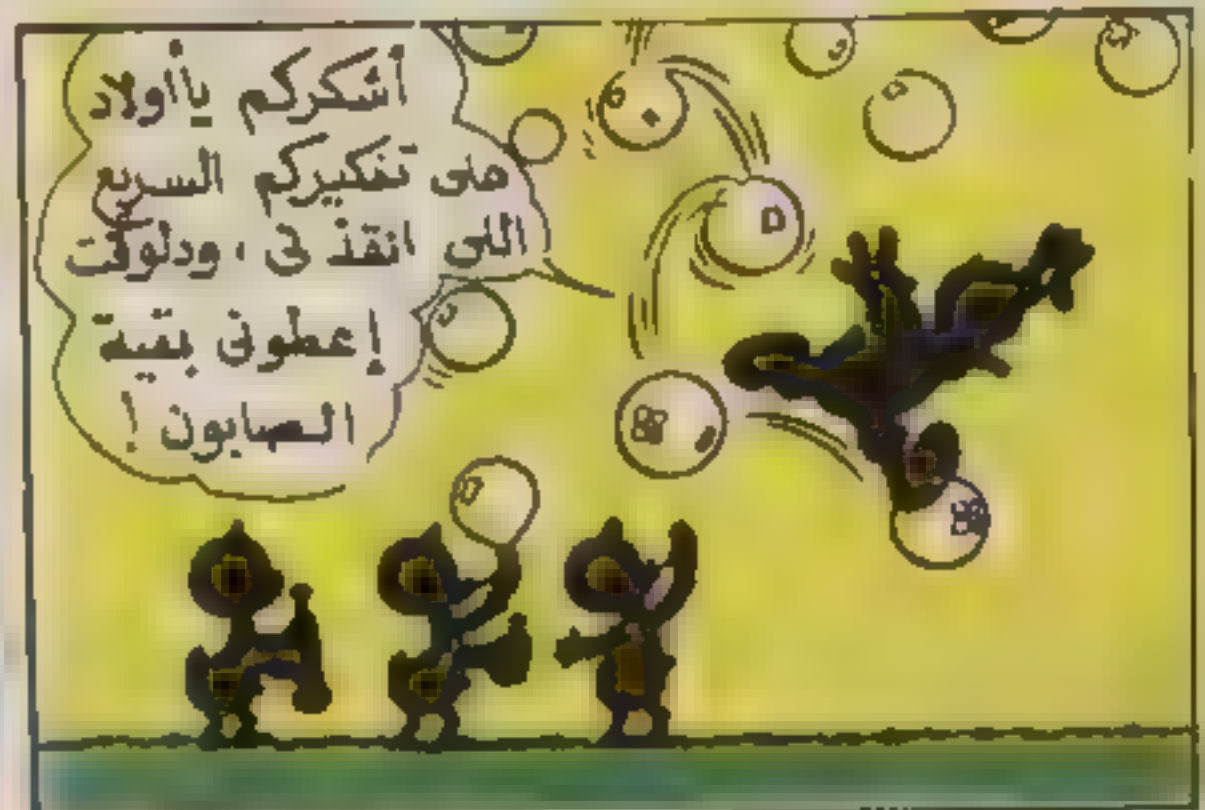 أشكركم ياأولاد
على تفكيركم السريع
اللى انقذ نى ، ودلوقت
إعطونى بقية
الصابون !